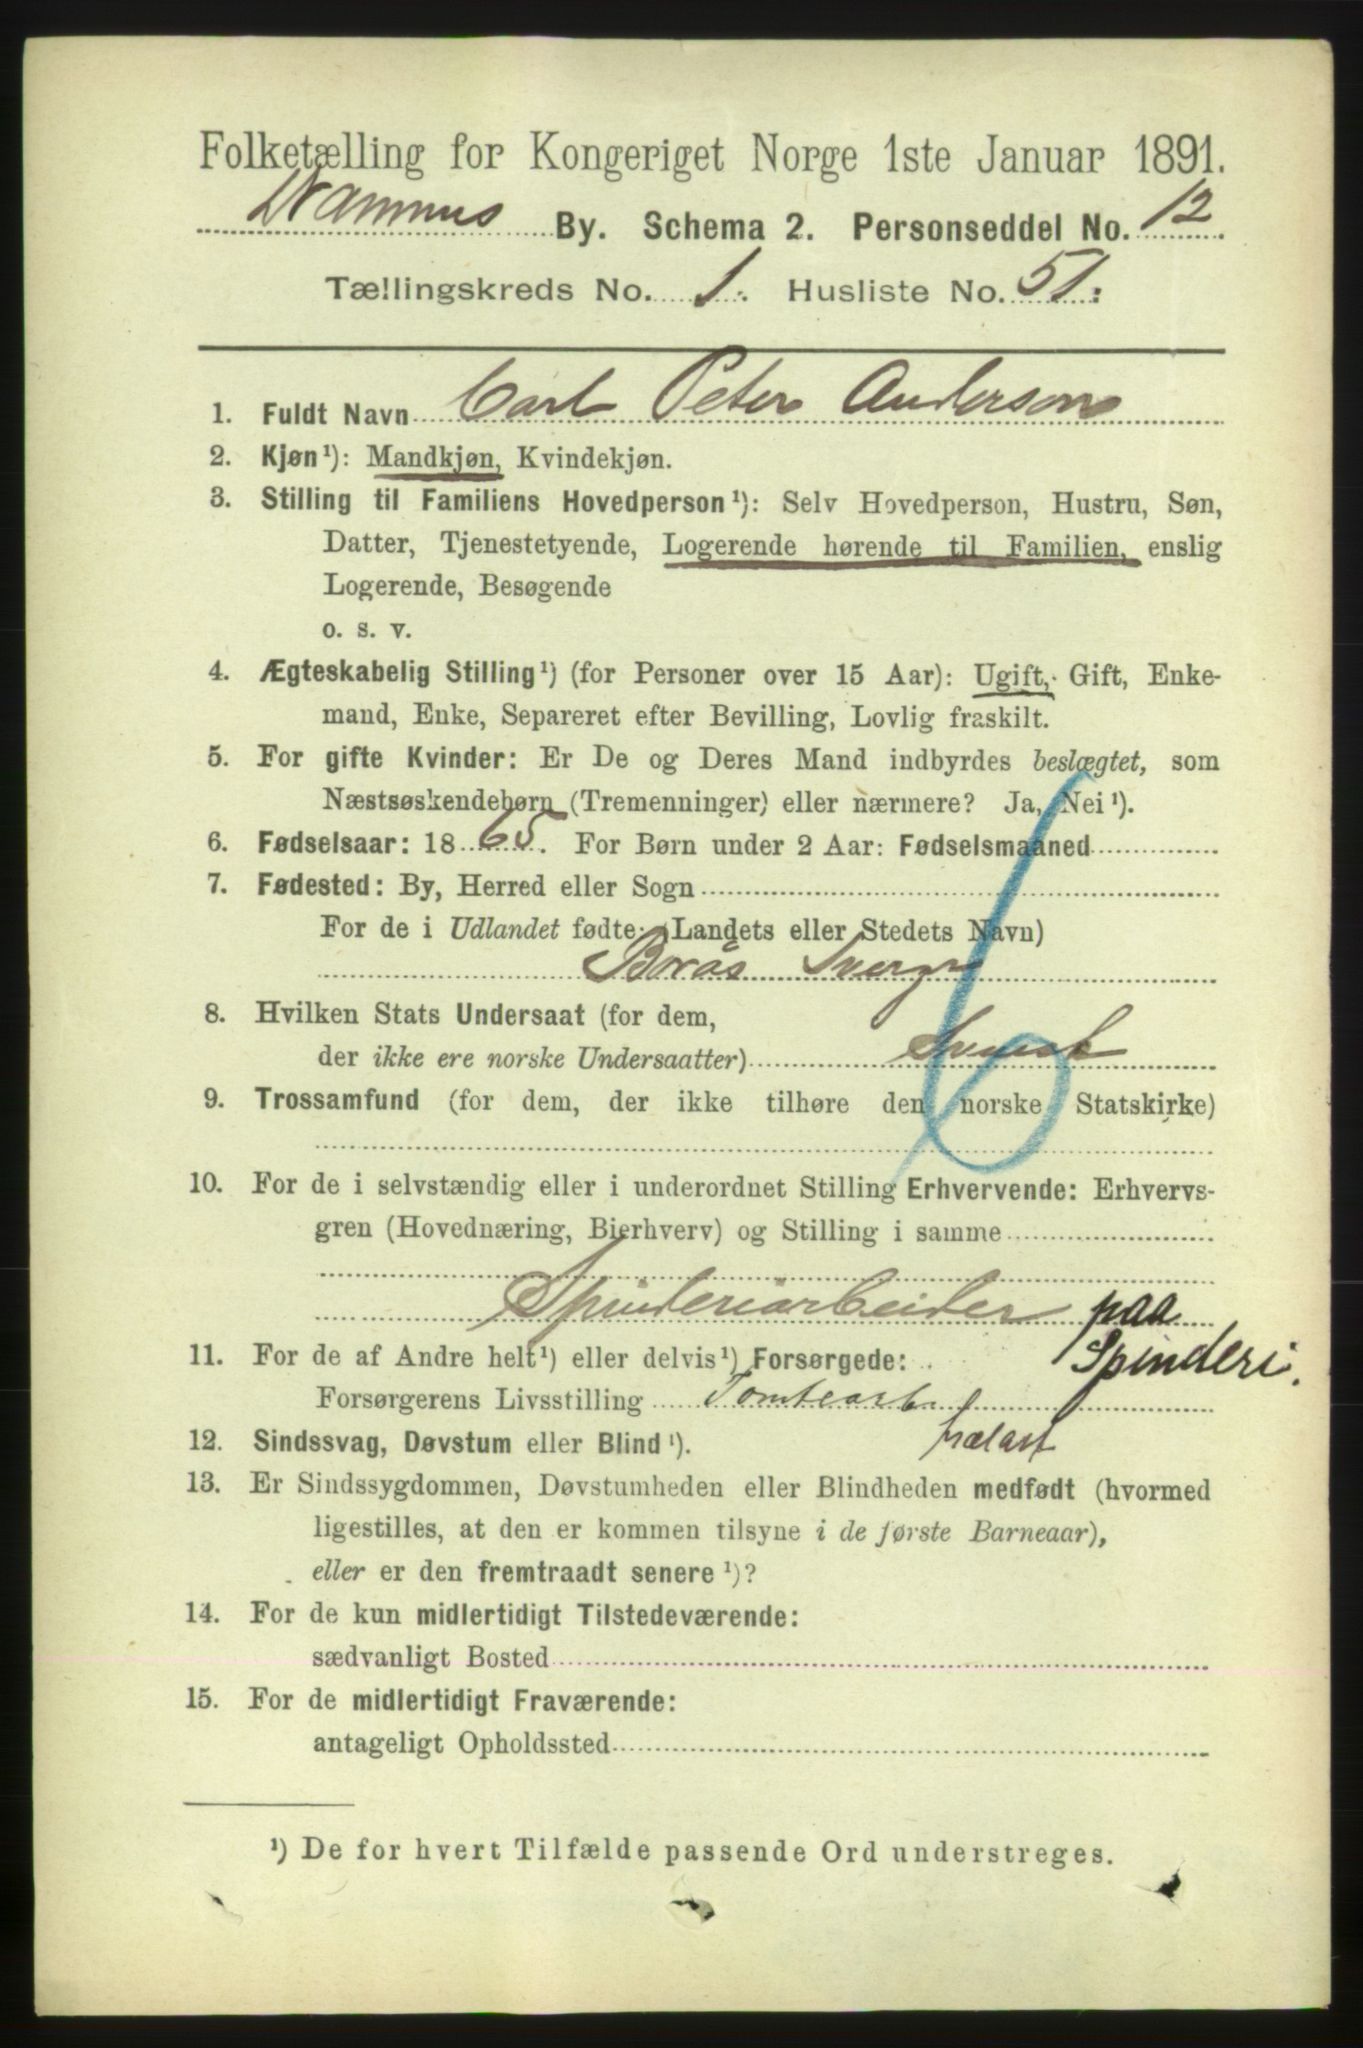 Folketælling for Kongeriget Norge 1ste Januar 1891.
Drammens By. Schema 2. Personseddel No. 12
Tællingskreds No. 1. Husliste No. 51.
1. Fuldt Navn Carl Peter Anderson
2. Kjøn¹): Mandkjøn, Kvindekjøn.
3. Stilling til Familiens Hovedperson¹): Selv Hovedperson, Hustru, Søn,
Datter, Tjenestetyende, Logerende hørende til Familien, enslig
Logerende, Besøgende
o. s. v.
4. Ægteskabelig Stilling¹) (for Personer over 15 Aar): Ugift, Gift, Enke-
mand, Enke, Separeret efter Bevilling, Lovlig fraskilt.
5. For gifte Kvinder: Er De og Deres Mand indbyrdes beslægtet, som
Næstsøskendebørn (Tremenninger) eller nærmere? Ja, Nei¹).
6. Fødselsaar: 1865. For Børn under 2 Aar: Fødselsmaaned
7. Fødested: By, Herred eller Sogn
For de i Udlandet fødte: (Landets eller Stedets Navn)
Borås Sverge
8. Hvilken Stats Undersaat (for dem,
der ikke ere norske Undersaatter) Svensk
9. Trossamfund (for dem, der ikke tilhøre den norske Statskirke)
6
10. For de i selvstændig eller i underordnet Stilling Erhvervende: Erhvervs-
gren (Hovednæring, Bierhverv) og Stilling i samme
Spinderiarbeider paa
Spinderi.
11. For de af Andre helt¹) eller delvis¹) Forsørgede:
Forsørgerens Livsstilling Tomtearb.
trælast
12. Sindssvag, Døvstum eller Blind¹).
13. Er Sindssygdommen, Døvstumheden eller Blindheden medfødt (hvormed
ligestilles, at den er kommen tilsyne i de første Barneaar),
eller er den fremtraadt senere¹)?
14. For de kun midlertidigt Tilstedeværende:
sædvanligt Bosted
15. For de midlertidigt Fraværende:
antageligt Opholdssted
¹) De for hvert Tilfælde passende Ord understreges.